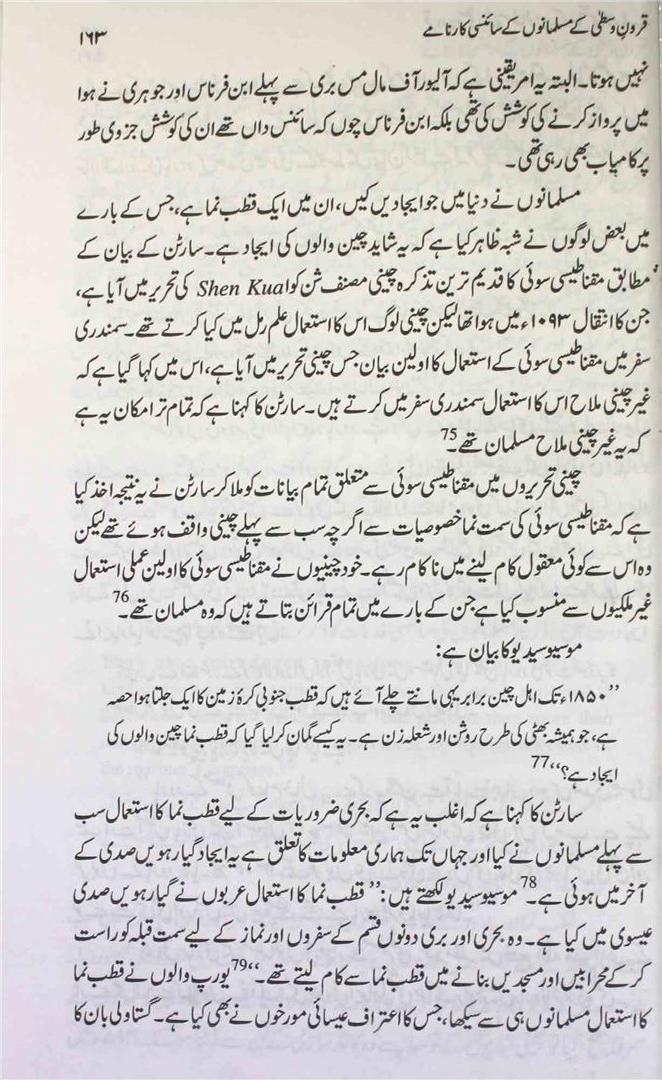 قرونِ وسطیٰ کے مسلمانوں کے سائنسی کارنامے ۱۶۳
نہیں ہوتا۔ البتہ یہ امر یقینی ہے کہ آلیور آف مال مس بری سے پہلے ابن فرناس اور جوہری نے ہوا
میں پرواز کرنے کی کوشش کی تھی بلکہ ابن فرناس چوں کہ سائنس داں تھے ان کی کوشش جزوی طور
پر کامیاب بھی رہی تھی۔
مسلمانوں نے دنیا میں جو ایجادیں کیں، ان میں ایک قطب نما ہے، جس کے بارے
میں بعض لوگوں نے شبہ ظاہر کیا ہے کہ یہ شاید چین والوں کی ایجاد ہے۔ سارٹن کے بیان کے
مطابق مقناطیسی سوئی کا قدیم ترین تذکرہ چینی مصنف شن کوا Shen Kua کی تحریر میں آیا ہے،
جن کا انتقال ۱۰۹۳ء میں ہوا تھا لیکن چینی لوگ اس کا استعمال علم رمل میں کیا کرتے تھے۔ سمندری
سفر میں مقناطیسی سوئی کے استعمال کا اولین بیان جس چینی تحریر میں آیا ہے، اس میں کہا گیا ہے کہ
غیر چینی ملاح اس کا استعمال سمندری سفر میں کرتے ہیں۔ سارٹن کا کہنا ہے کہ تمام تر امکان یہ ہے
کہ یہ غیر چینی ملاح مسلمان تھے۔75
چینی تحریروں میں مقناطیسی سوئی سے متعلق تمام بیانات کو ملا کر سارٹن نے یہ نتیجہ اخذ کیا
ہے کہ مقناطیسی سوئی کی سمت نما خصوصیات سے اگرچہ سب سے پہلے چینی واقف ہوئے تھے لیکن
وہ اس سے کوئی معقول کام لینے میں ناکام رہے۔ خود چینیوں نے مقناطیسی سوئی کا اولین عملی استعمال
غیر ملکیوں سے منسوب کیا ہے جن کے بارے میں تمام قرائن بتاتے ہیں کہ وہ مسلمان تھے۔76
موسیو سیدیو کا بیان ہے:
”۱۸۵۰ء تک اہل چین برابر یہی مانتے چلے آئے ہیں کہ قطب جنوبی کرۂ زمین کا ایک جلتا ہوا حصہ
ہے، جو ہمیشہ بھٹی کی طرح روشن اور شعلہ زن ہے۔ یہ کیسے گمان کر لیا گیا کہ قطب نما چین والوں کی
ایجاد ہے؟“77
سارٹن کا کہنا ہے کہ اغلب یہ ہے کہ بحری ضروریات کے لیے قطب نما کا استعمال سب
سے پہلے مسلمانوں نے کیا اور جہاں تک ہماری معلومات کا تعلق ہے یہ ایجاد گیارہویں صدی کے
آخر میں ہوئی ہے۔78 موسیو سیدیو لکھتے ہیں: ”قطب نما کا استعمال عربوں نے گیارہویں صدی
عیسوی میں کیا ہے۔ وہ بحری اور بری دونوں قسم کے سفروں اور نماز کے لیے سمت قبلہ کو راست
کر کے محرابیں اور مسجدیں بنانے میں قطب نما سے کام لیتے تھے۔“79 یورپ والوں نے قطب نما
کا استعمال مسلمانوں ہی سے سیکھا، جس کا اعتراف عیسائی مورخوں نے بھی کیا ہے۔ گستاولی بان کا